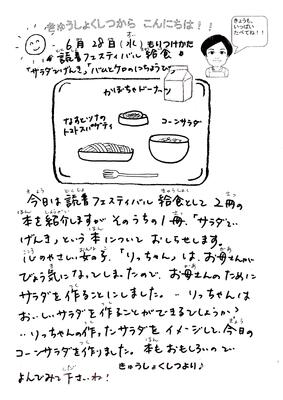 きゅうしょくしつから こんにちは!
きょうも、
いっぱい
たべてね!!
6月28日(水)もりつけかた
読書フェスティバル給食
「サラダでげんき」「バムとケロのにちようび」
かぼちゃドーナツ
なすとツナの
トマトスパゲティ
コーンサラダ
今日は読書フェスティバル給食として2冊の
本を紹介しますが、そのうちの1冊、「サラダで
げんき」という本についておしらせします。
心のやさしい女の子、「りっちゃん」は、お母さんが
びょう気になってしまったので、お母さんのために
サラダを作ることにしました。‥りっちゃんは
おいしいサラダを作ることができるでしょうか?
‥りっちゃんの作ったサラダをイメージして、今日の
コーンサラダを作りました。本もおもしろいので
よんでみて下さいね!
きゅうしょくしつより♪